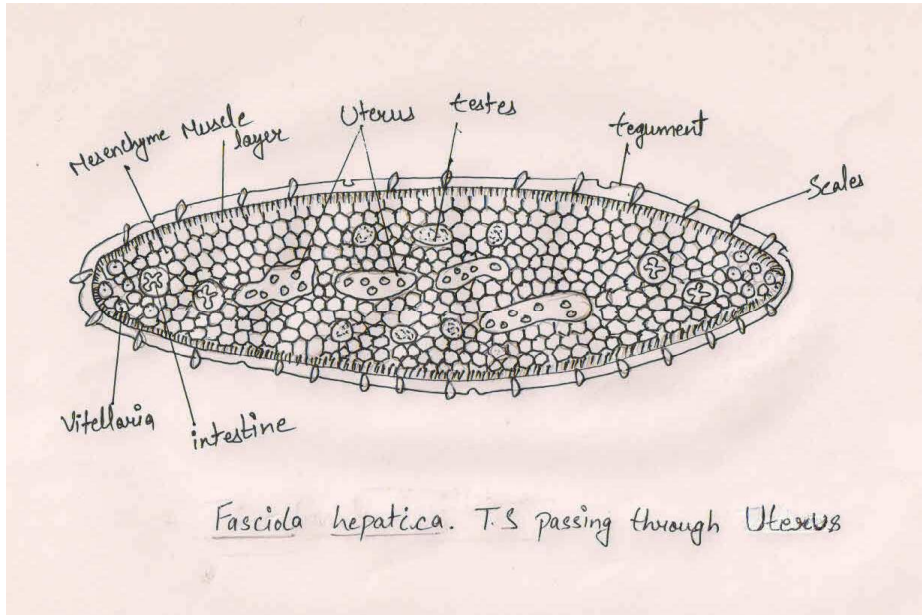 Mesenchyme
Muscle
layer
Uterus
testes
tegument
Scales
Vitellaria
intestine
Fasciola hepatica. T.S passing through Uterus